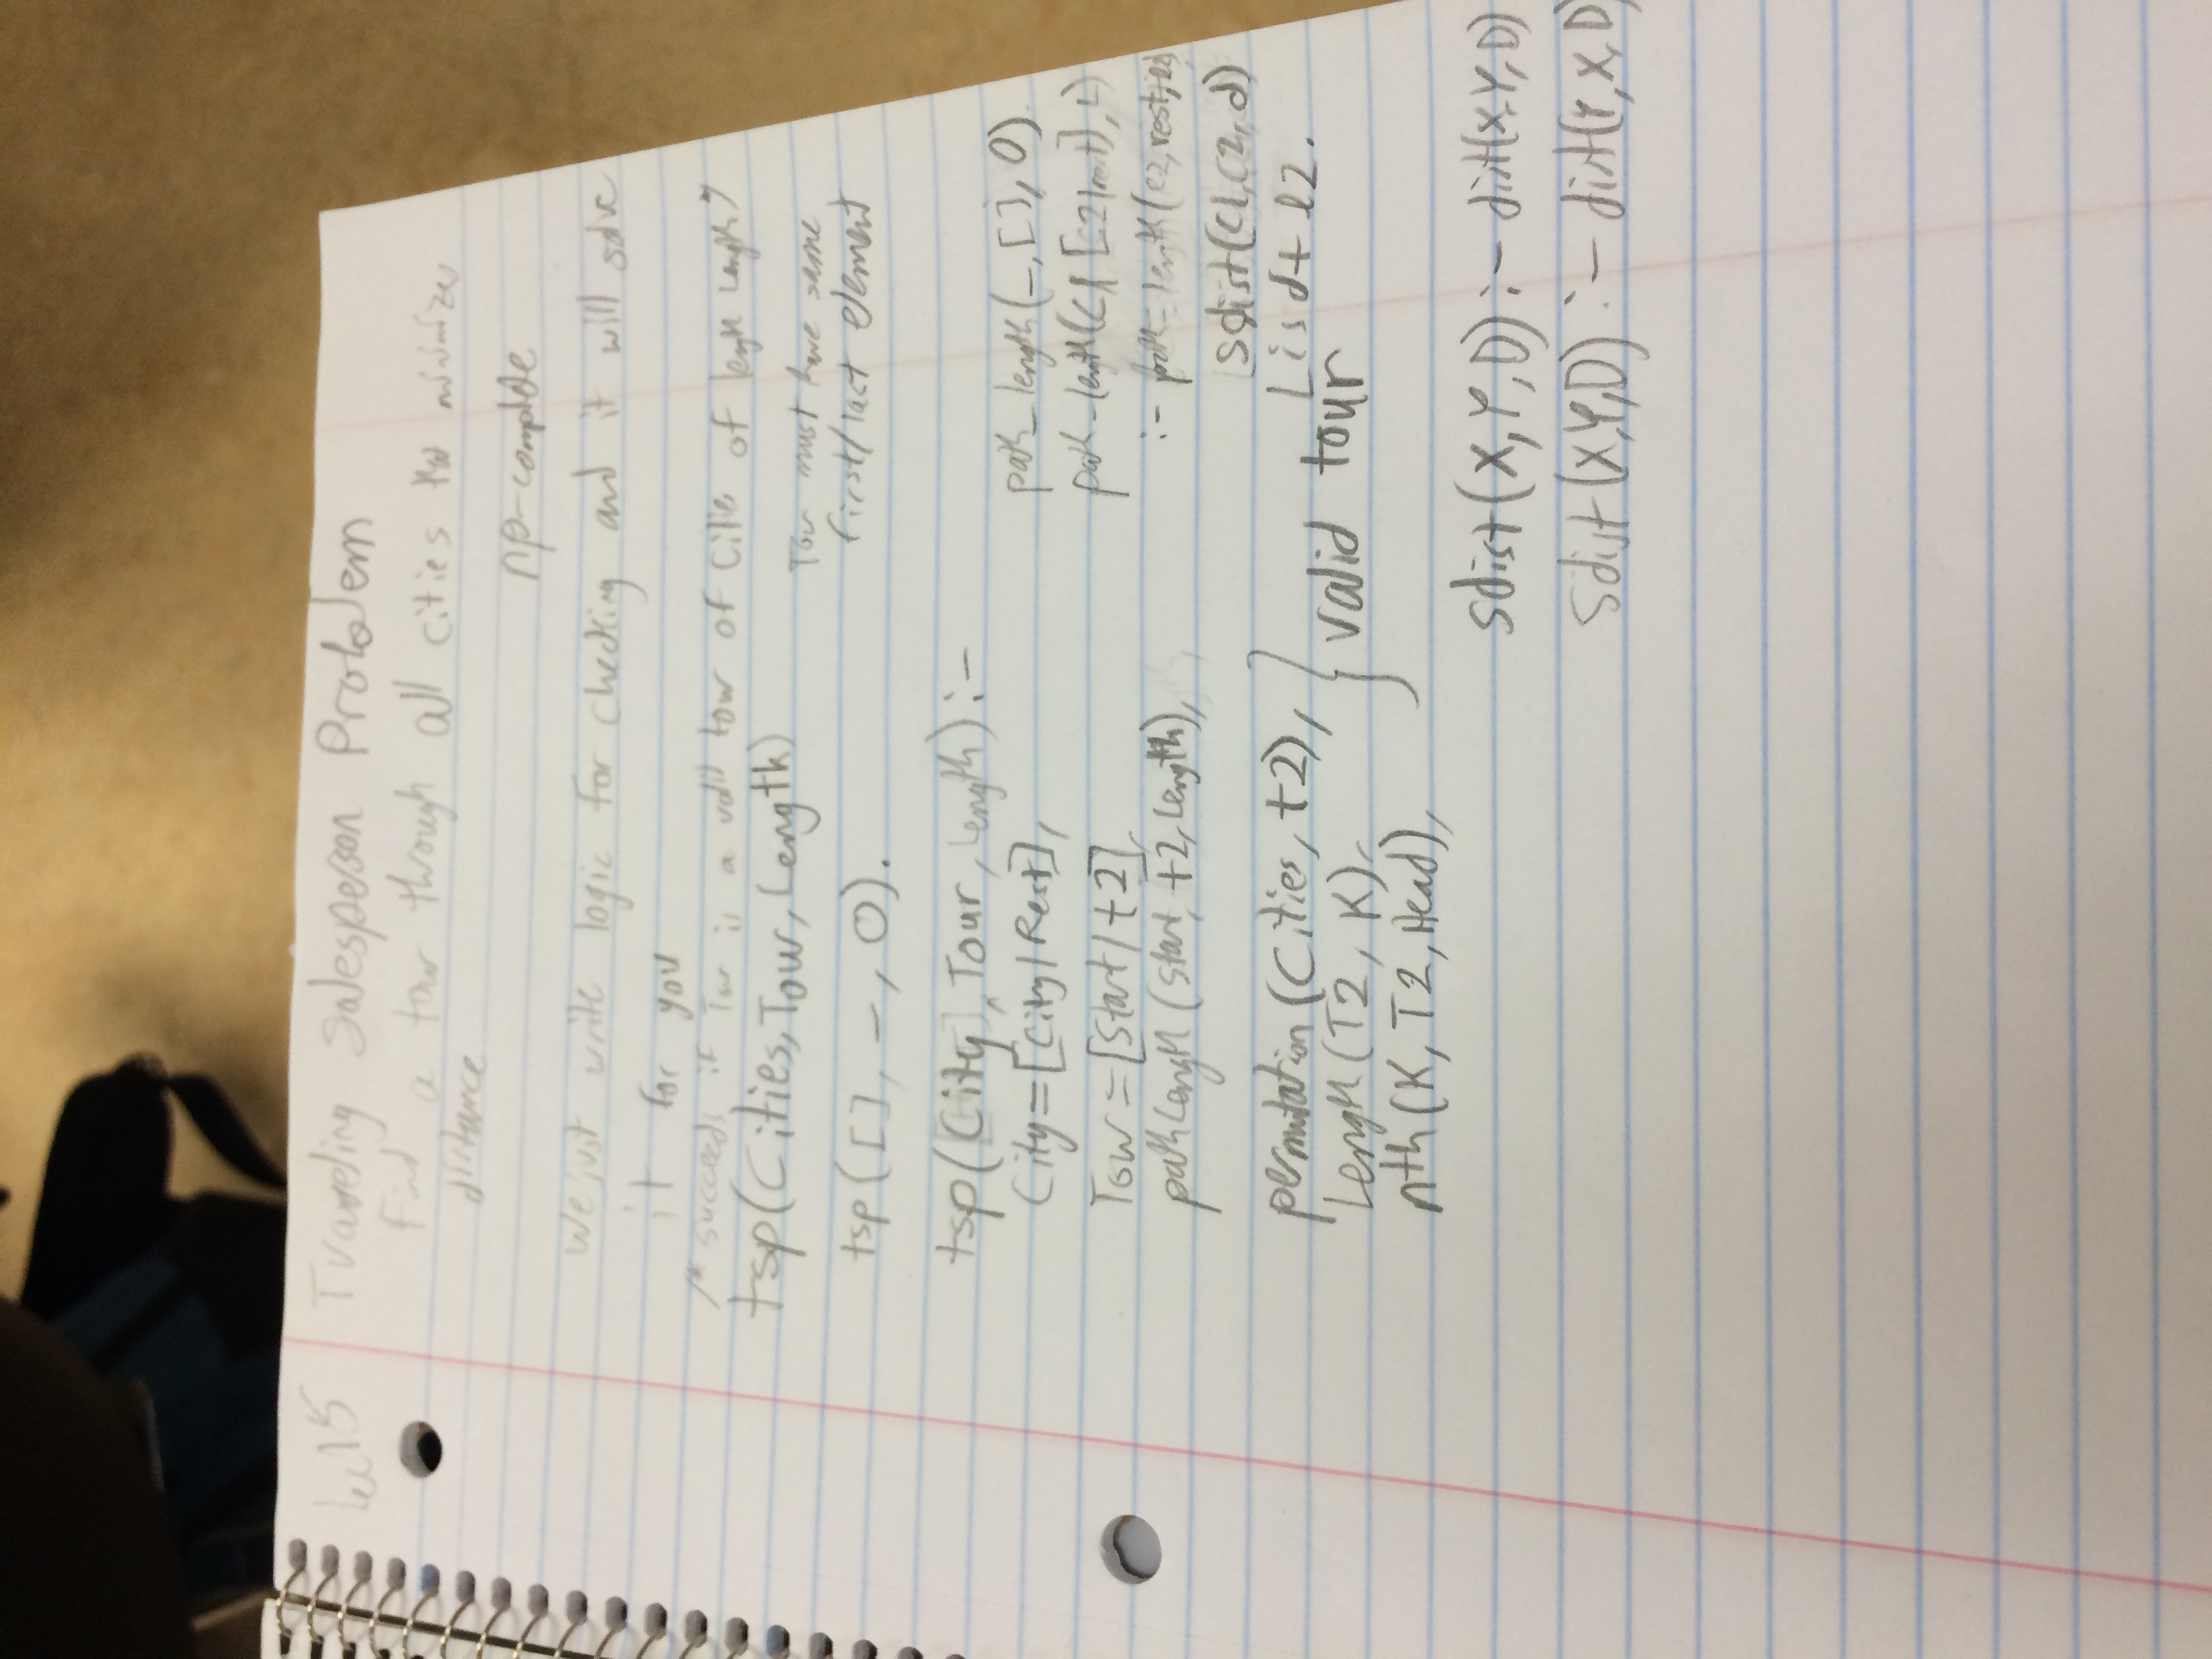 Lec 15
Traveling Salesperson Problem
Find a tour through all cities that minimizes
distance
np-complete
We just write logic for checking and it will solve
it for you
/* succeeds if Tour is a valid tour of Cities of length Length */
tsp(Cities, Tour, Length)
Tour must have same
first/last element
tsp([], _, 0).
tsp(City, Tour, Length) :-
City = [City | Rest],
Tour = [Start | t2],
pathLength (Start, t2, Length),
permutation (Cities, t2),
Length (T2, K),
nth (K, T2, Head),
valid tour
path_length(_, [], 0)
path_length(C1 [C2|rest], L)
:- path_length(c2, rest,
sdist(C1, C2, d)
L is d + l2.
sdist(X, Y, D) :- dist(X, Y, D)
sdist(X, Y, D) :- dist(Y, X, D)